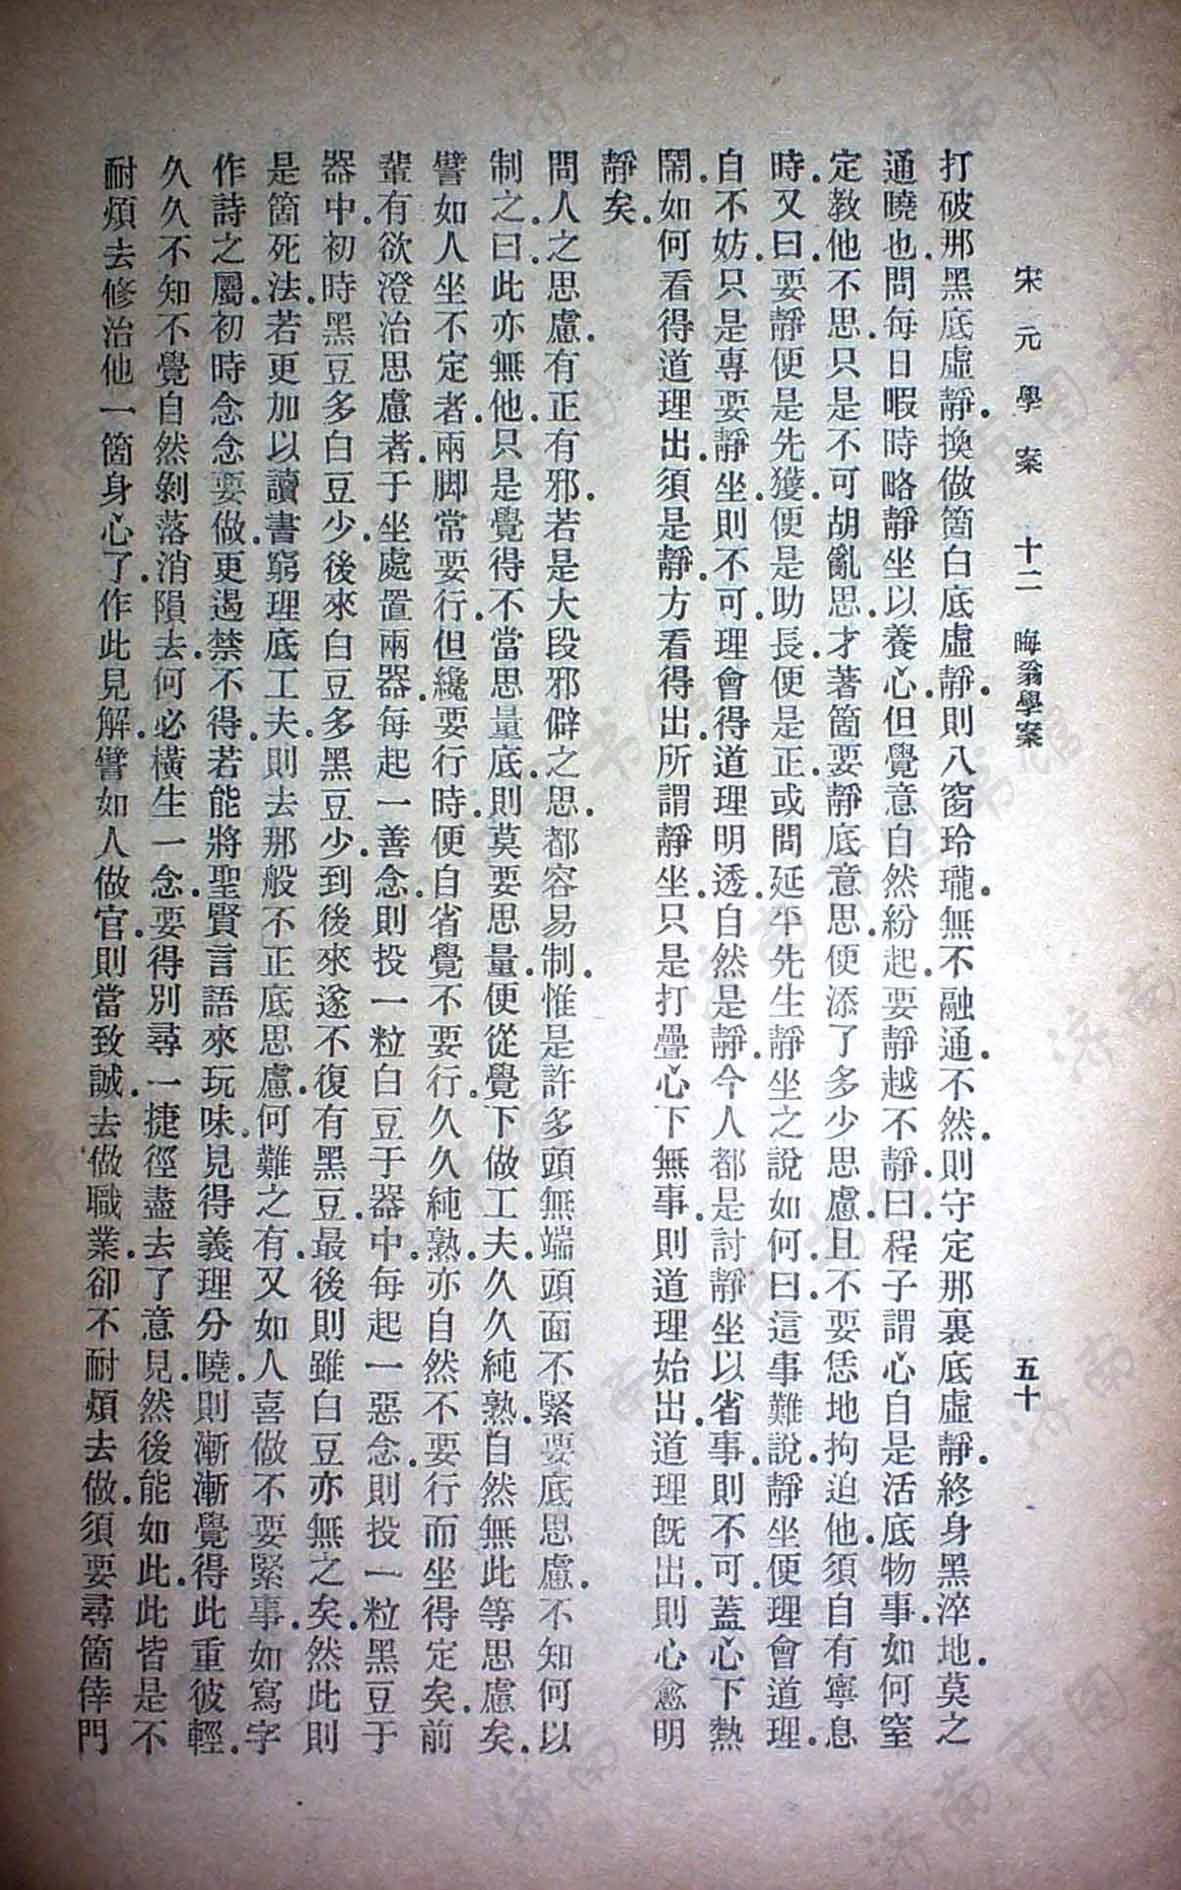 宋元學案 十二 晦翁學案 五十
打破那黑底虛靜。換做箇白底虛靜。則八窗玲瓏。無不融通。不然。則守定那裏底虛靜。終身黑淬地。莫之
通曉也。問每日暇時略靜坐。以養心。但覺意自然紛起。要靜越不靜。曰。程子謂心自是活底物事。如何窒
定教他不思。只是不可胡亂思。才著箇要靜底意思。便添了多少思慮。且不要恁地拘迫他。須自有寧息
時。又曰。要靜便是先獲。便是助長。便是正。或問延平先生靜坐之說如何。曰。這事難說。靜坐便理會道理。
自不妨。只是專要靜坐。則不可。理會得道理明透。自然是靜。今人都是討靜坐以省事。則不可。蓋心下熱
鬧。如何看得道理出。須是靜。方看得出。所謂靜坐。只是打疊心下無事。則道理始出。道理既出。則心愈明
靜矣。
問人之思慮。有正有邪。若是大段邪僻之思。都容易制。惟是許多頭無端頭面不緊要底思慮。不知何以
制之。曰。此亦無他。只是覺得不當思量底。則莫要思量。便從覺下做工夫。久久純熟。自然無此等思慮矣。
譬如人坐不定者。兩脚常要行。但纔要行時。便自省覺不要行。久久純熟。亦自然不要行而坐得定矣。前
輩有欲澄治思慮者。于坐處置兩器。每起一善念。則投一粒白豆于器中。每起一惡念。則投一粒黑豆于
器中。初時黑豆多白豆少。後來白豆多黑豆少。到後來遂不復有黑豆。最後則雖白豆亦無之矣。然此則
是箇死法。若更加以讀書窮理底工夫。則去那般不正底思慮。何難之有。又如人喜做不要緊事。如寫字
作詩之屬。初時念念要做。更遏禁不得。若能將聖賢言語來玩味。見得義理分曉。則漸漸覺得此重彼輕。
久久不知不覺自然剝落消隕去。何必橫生一念。要得別尋一捷徑。盡去了意見。然後能如此。此皆是不
耐煩去修治他一箇身心了。作此見解。譬如人做官。則當致誠去做職業。卻不耐煩去做。須要尋箇倖門